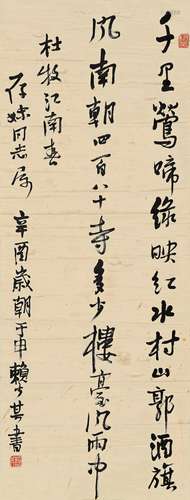 千里鶯啼绿映红水村山郭酒旗
风南朝四百八十寺多少樓臺风雨中
杜牧江南春
同志属
辛酉歲朝于申賴少其書